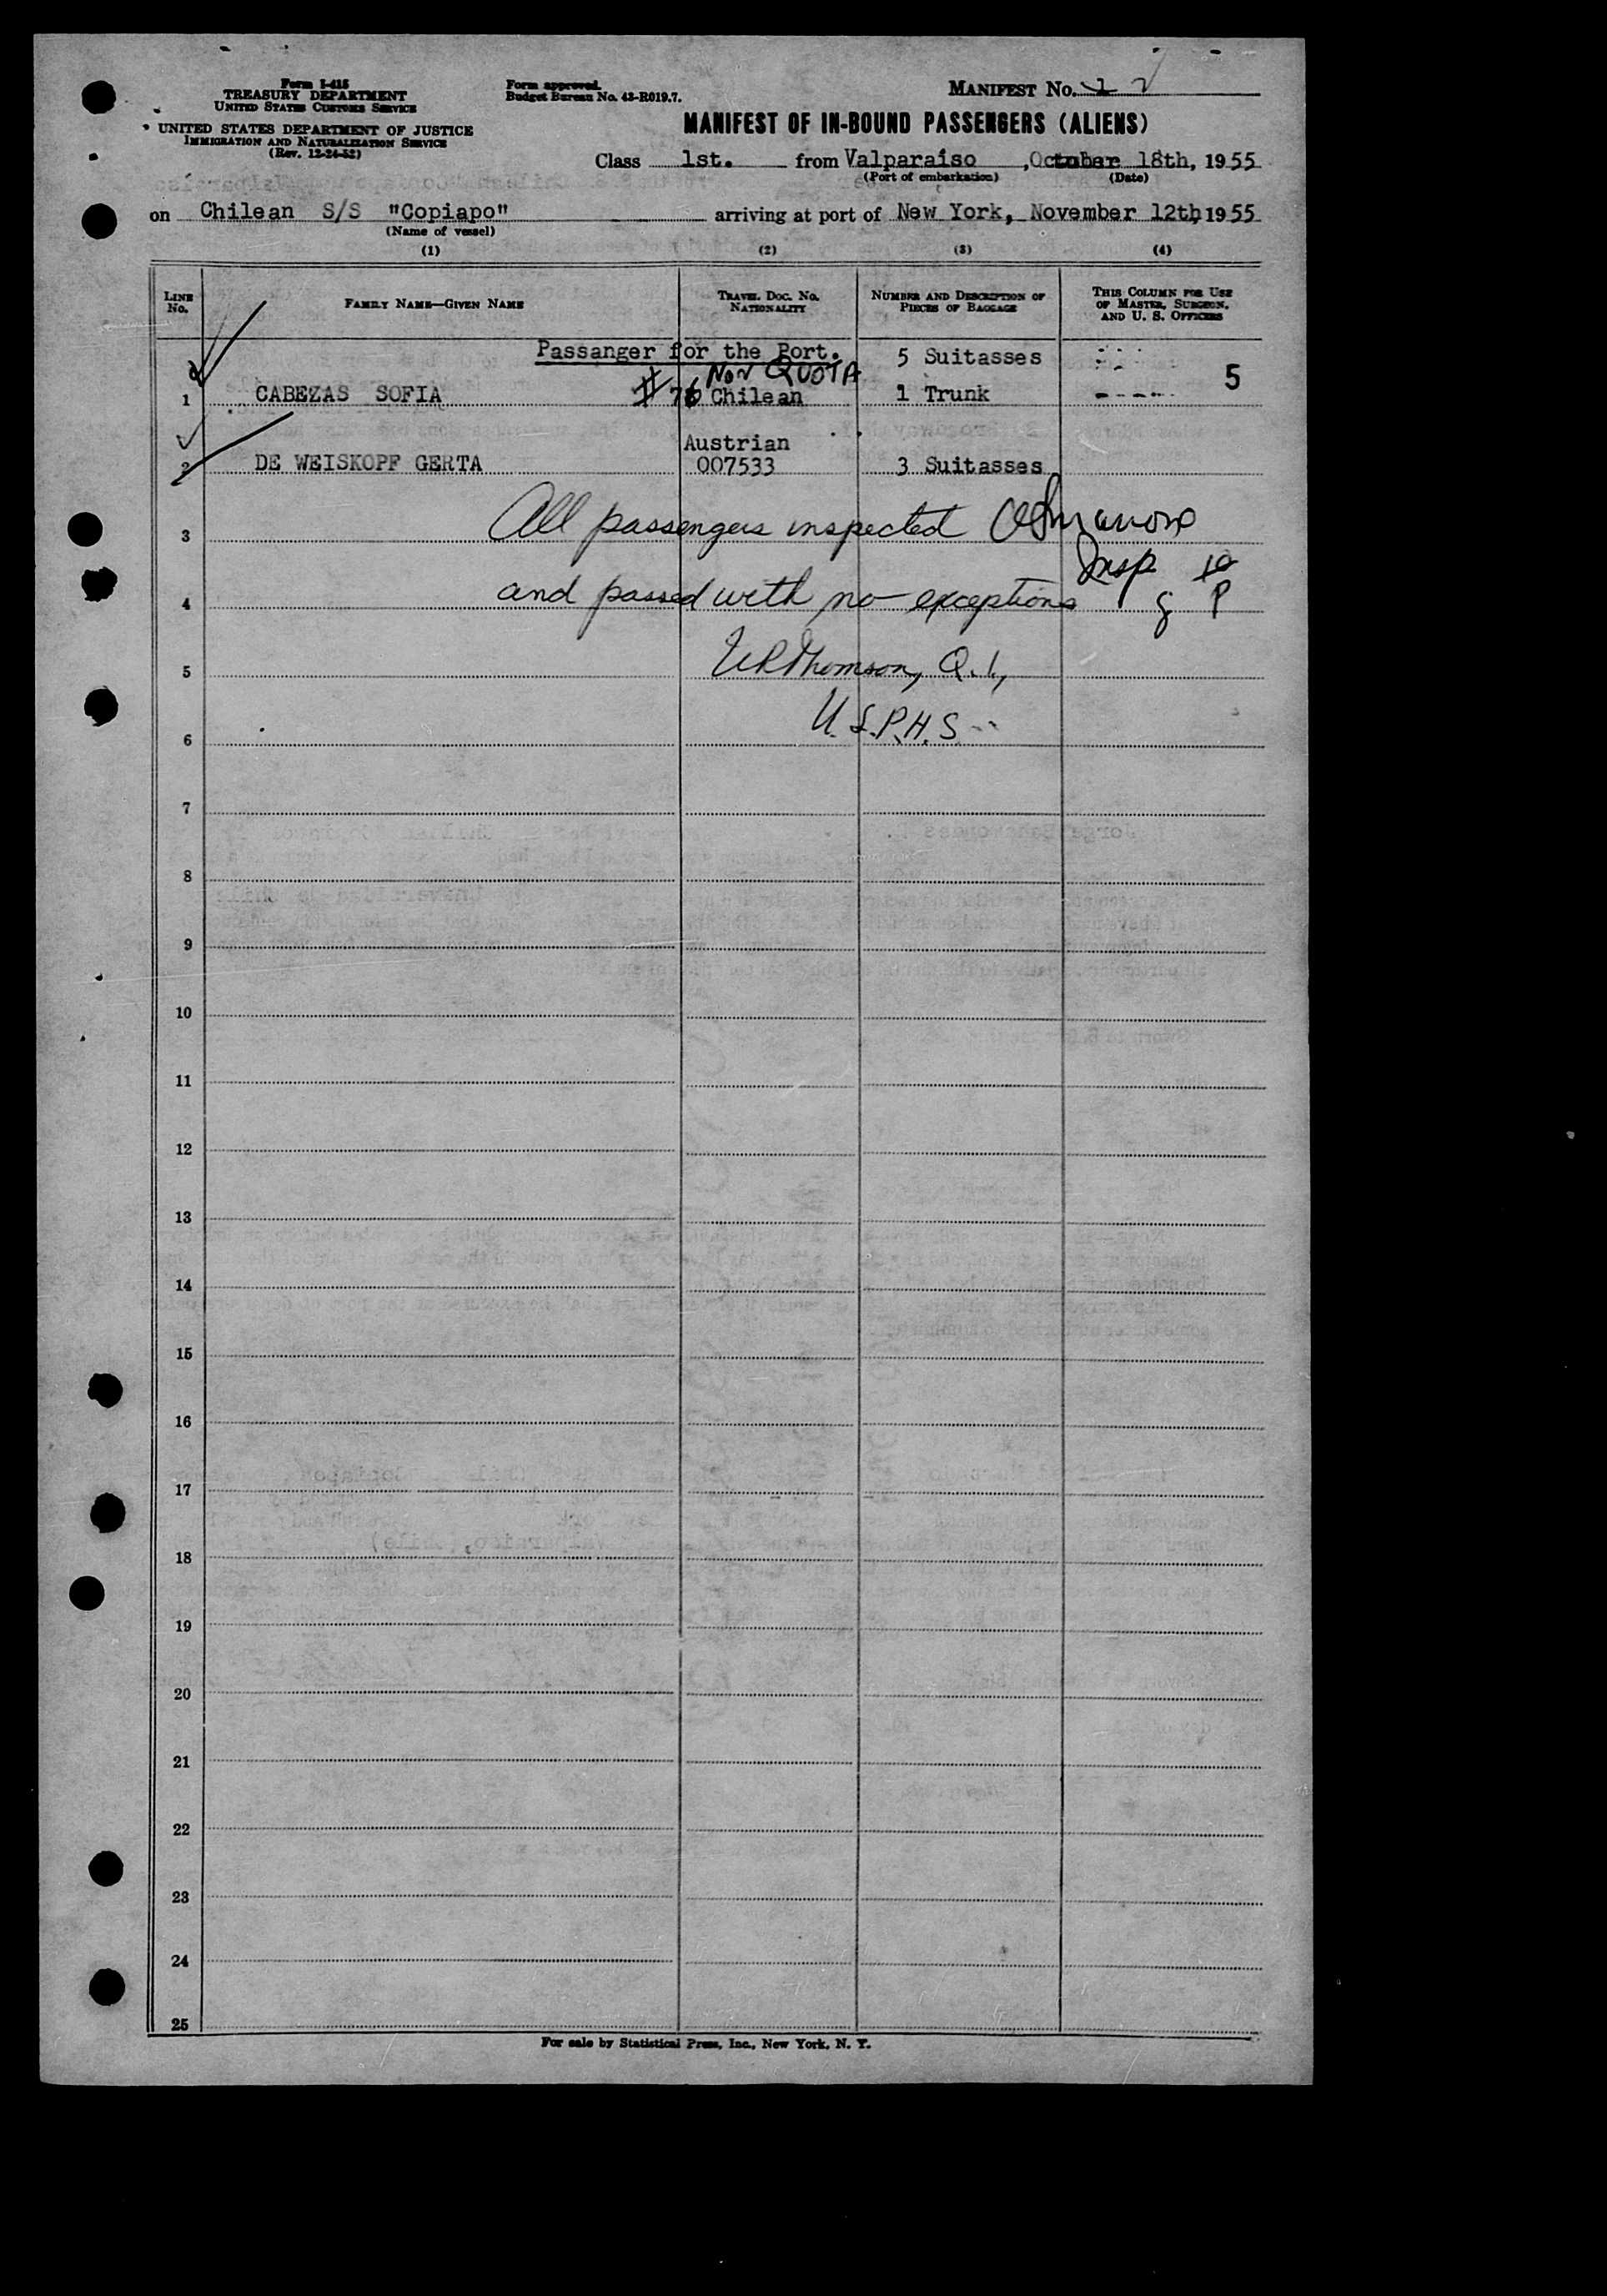 Form I-415
TREASURY DEPARTMENT
UNITED STATES CUSTOMS SERVICE
UNITED STATES DEPARTMENT OF JUSTICE
IMMIGRATION AND NATURALIZATION SERVICE
(Rev. 12-24-52)
Form approved.
Budget Bureau No. 43-R019.7.
MANIFEST NO. 1
MANIFEST OF IN-BOUND PASSENGERS (ALIENS)
Class 1st. from Valparaiso, October 18th, 1955
(Port of embarkation) (Date)
on Chilean S/S "Copiapo" arriving at port of New York, November 12th, 1955
(Name of vessel)
(1) (2) (3) (4)
LINE NO. FAMILY NAME—GIVEN NAME TRAVEL DOC. NO. NATIONALITY NUMBER AND DESCRIPTION OF PIECES OF BAGGAGE THIS COLUMN FOR USE OF MASTER, SURGEON, AND U. S. OFFICERS
Passanger for the Port. 5 Suitasses
NON QUOTA 5
1 CABEZAS SOFIA # 76 Chilean 1 Trunk
Austrian
2 DE WEISKOPF GERTA 007533 3 Suitasses
3 All passengers inspected
Insp
4 and passed with no exceptions
5 Thomson, Q.I.,
6 U.S.P.H.S.
7
8
9
10
11
12
13
14
15
16
17
18
19
20
21
22
23
24
25
For sale by Statistical Press, Inc., New York, N. Y.